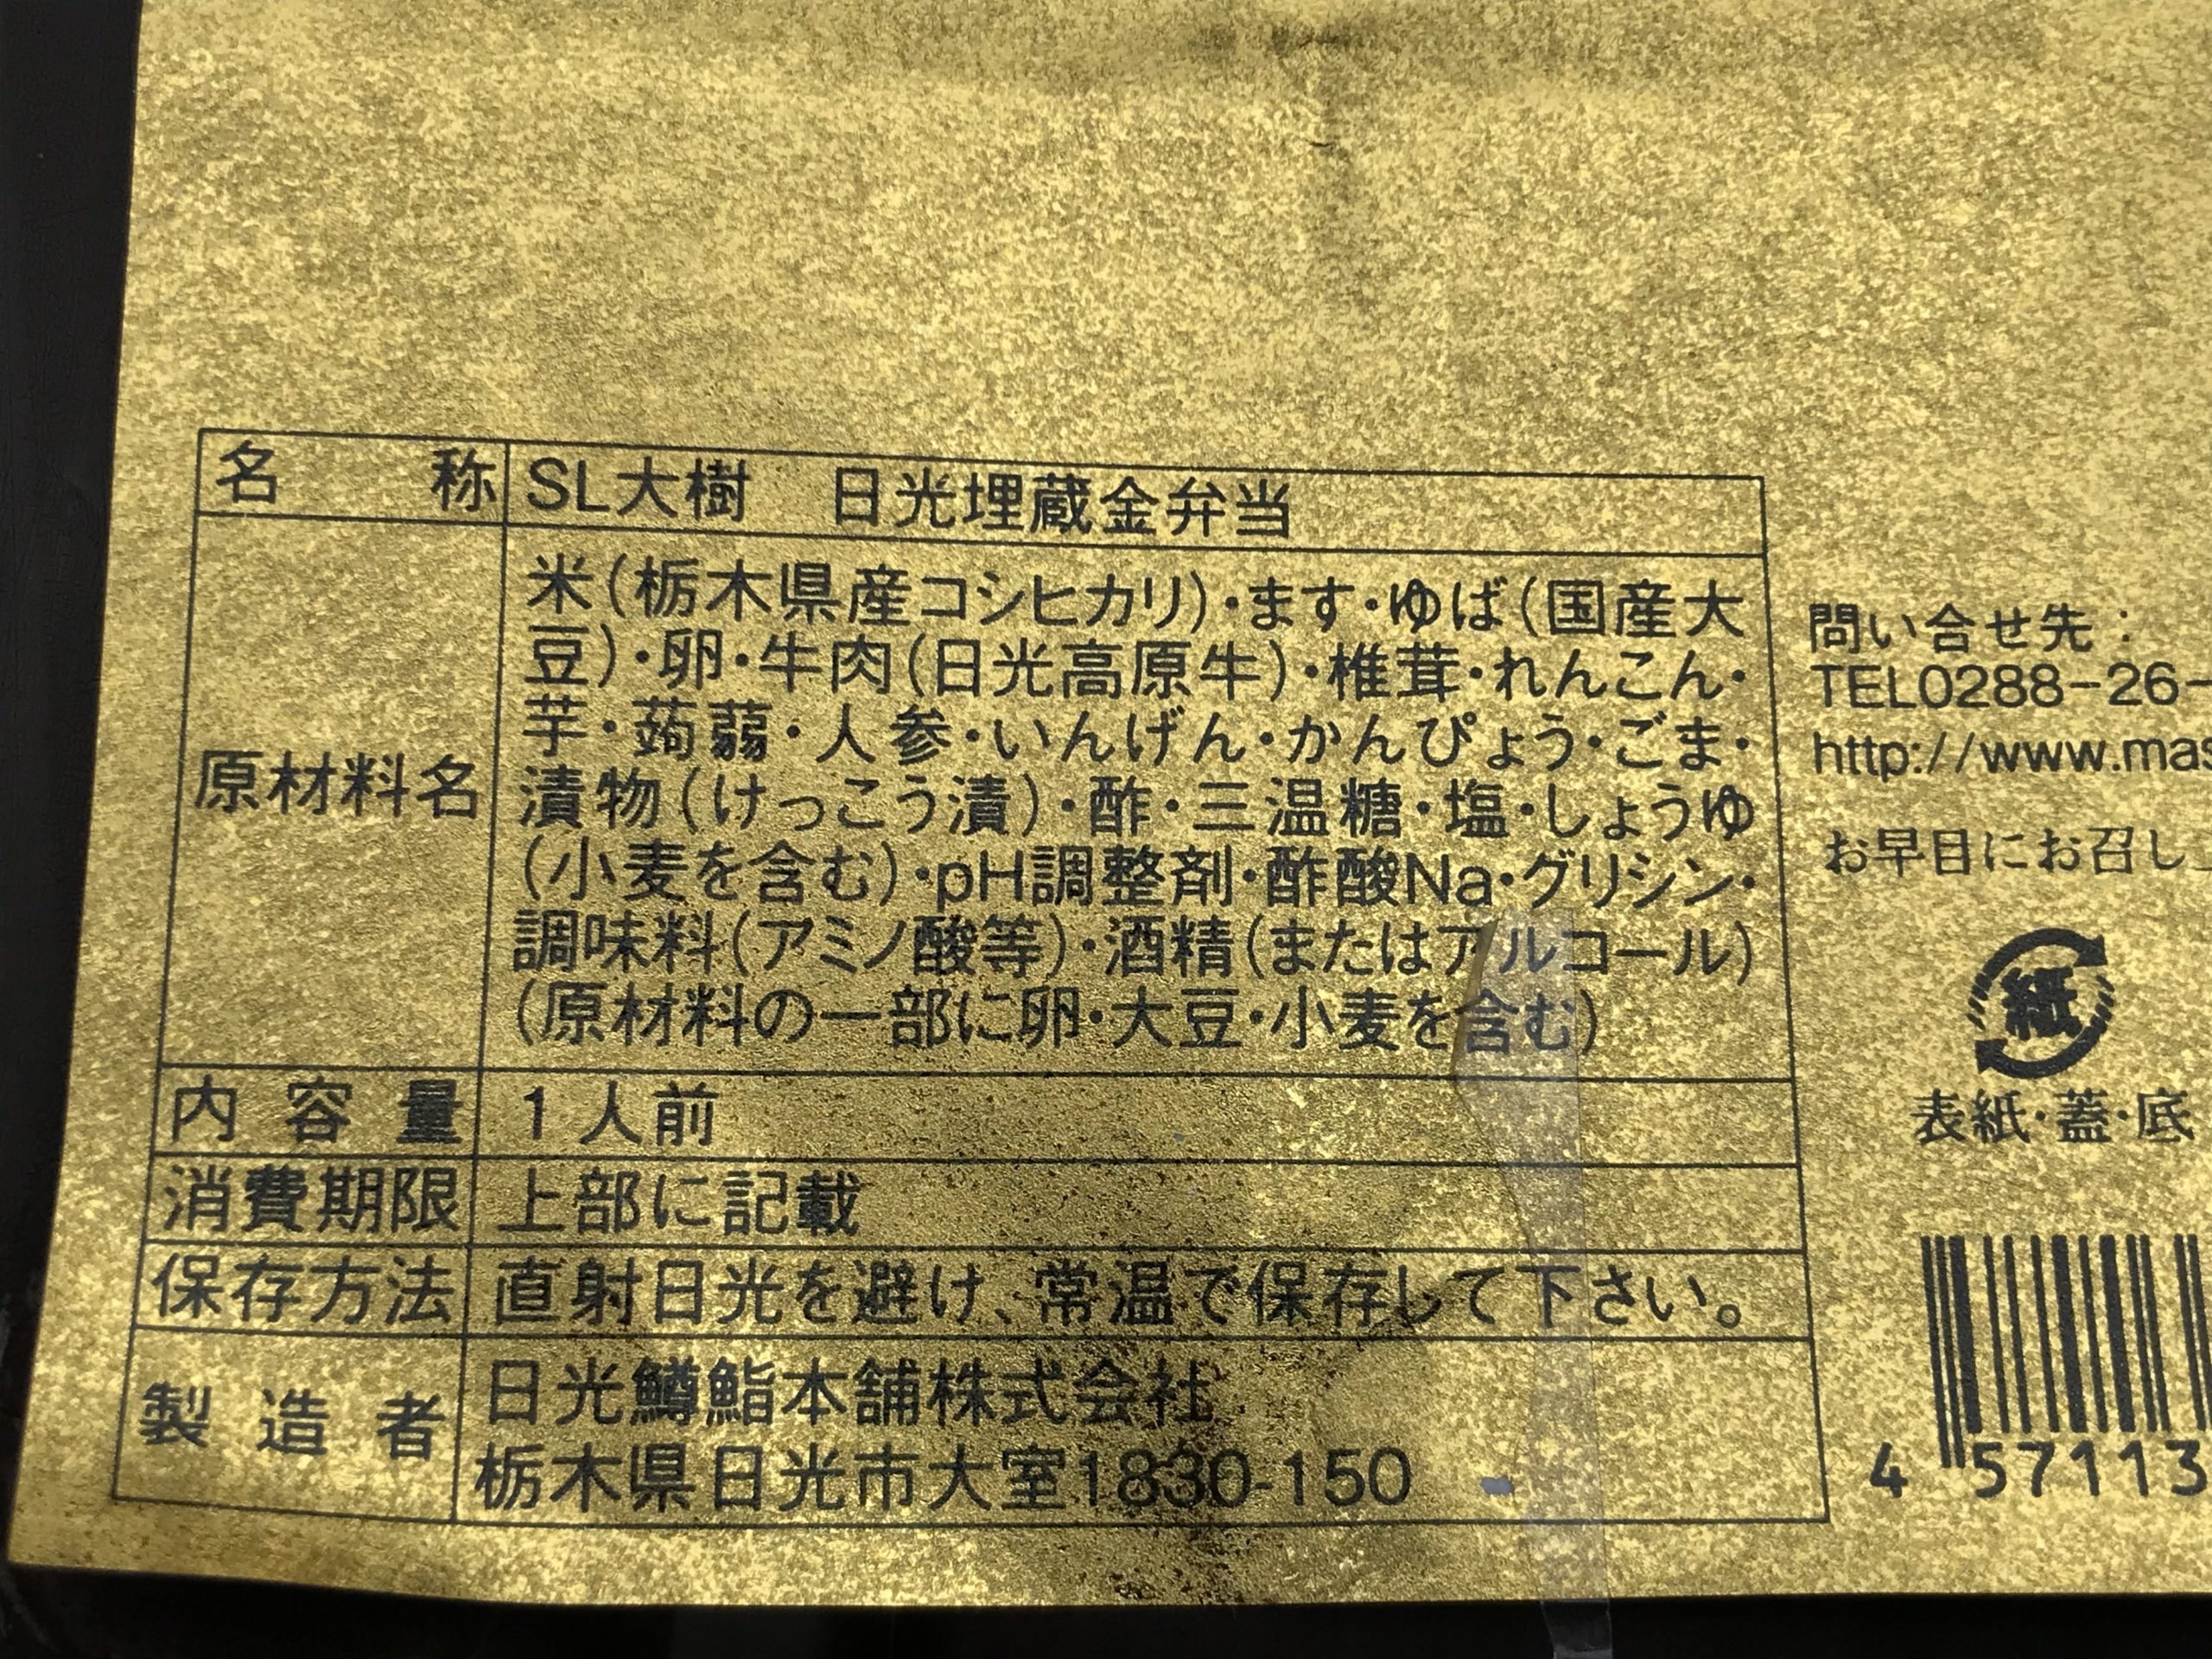 名称 SL大樹 日光埋蔵金弁当
原材料名
米(栃木県産コシヒカリ)・ます・ゆば(国産大
豆)・卵・牛肉(日光高原牛)・椎茸・れんこん・
芋・蒟蒻・人参・いんげん・かんぴょう・ごま・
漬物(けっこう漬)・酢・三温糖・塩・しょうゆ
(小麦を含む)・pH調整剤・酢酸Na・グリシン・
調味料(アミノ酸等)・酒精(またはアルコール)
(原材料の一部に卵・大豆・小麦を含む)
内容量 1人前
消費期限 上部に記載
保存方法 直射日光を避け、常温で保存して下さい。
製造者
日光鱒鮨本舗株式会社
栃木県日光市大室1830-150
問い合せ先：
TEL0288-26-
http://www.mas
お早目にお召し
紙
表紙・蓋・底
4 57113